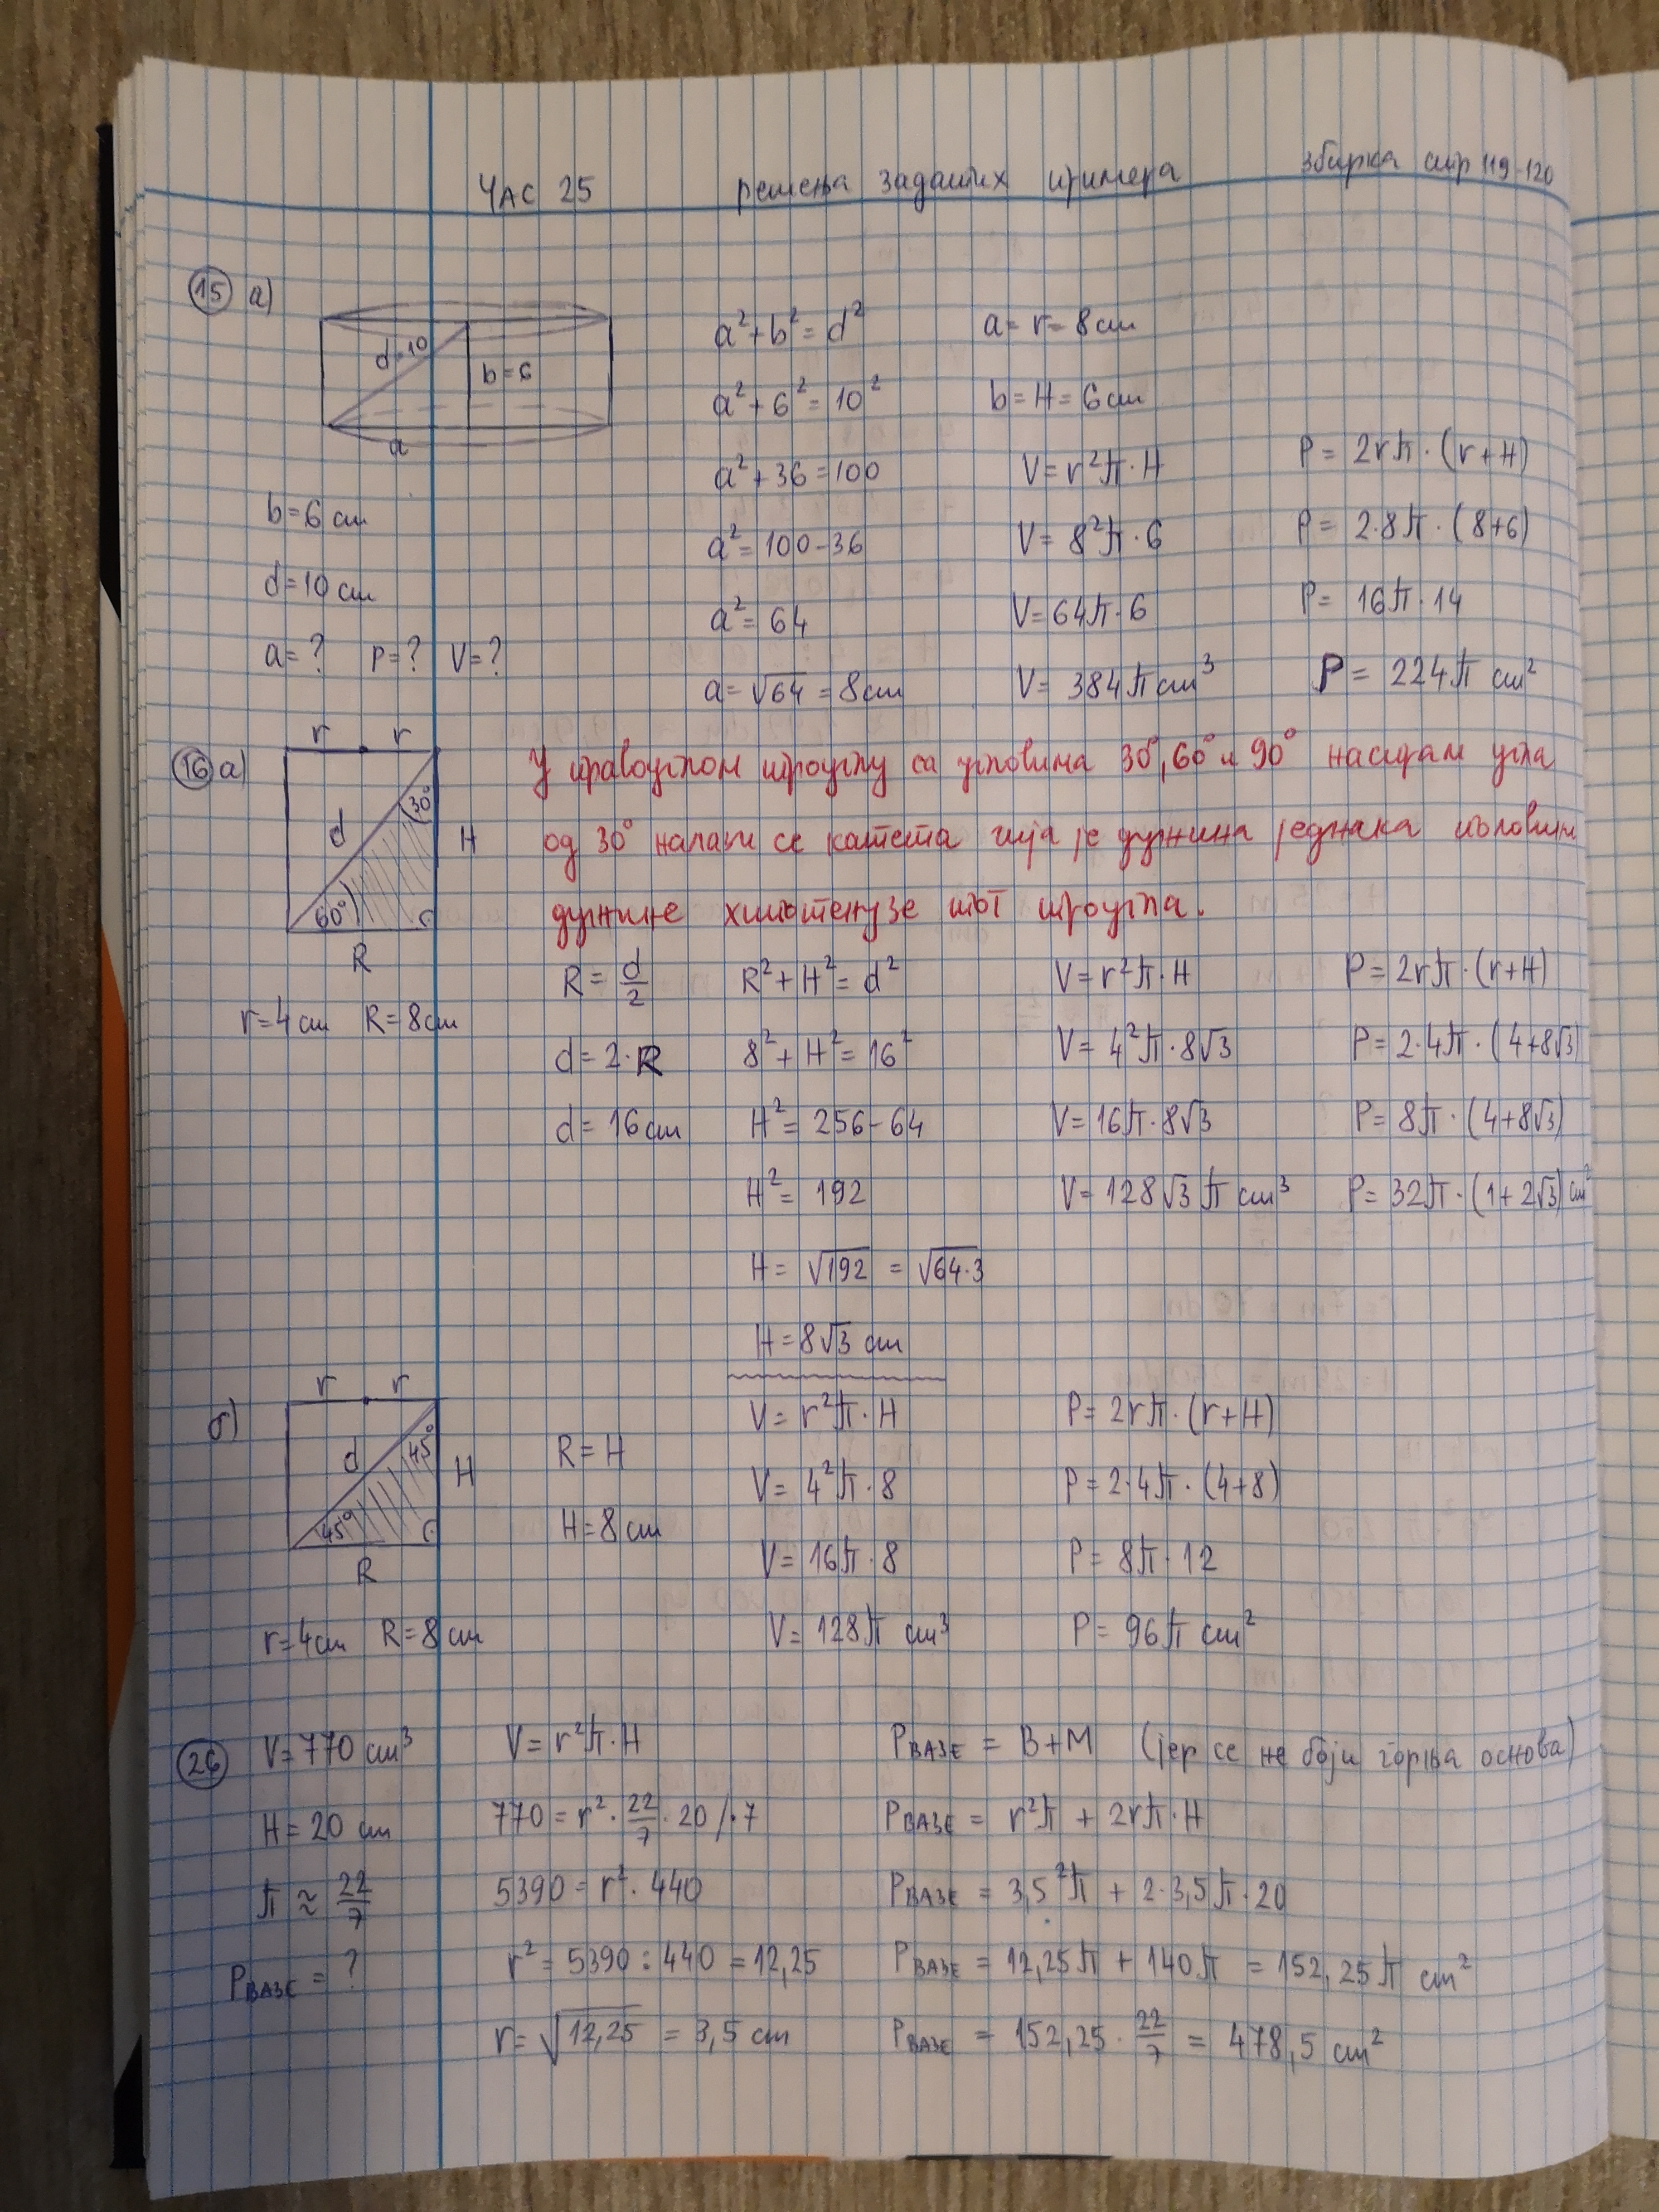 ЧАС 25 решења задатих примера збирка стр 119-120
15 а)
d=10
b=6
a
b=6 cm
d=10 cm
a=? P=? V=?
a²+b²=d²
a²+6²=10²
a²+36=100
a²=100-36
a²=64
a=√64=8cm
a=r=8cm
b=H=6cm
V=r²π·H
V=8²π·6
V=64π·6
V=384π cm³
P=2rπ·(r+H)
P=2·8π·(8+6)
P=16π·14
P=224π cm²
16 а)
r r
30°
d H
60°
R
r=4cm R=8cm
У правоуглом троуглу са угловима 30°, 60° и 90° наспрам угла
од 30° налази се катета чија је дужина једнака половини
дужине хипотенузе тог троугла.
R=d/2
d=2·R
d=16cm
R²+H²=d²
8²+H²=16²
H²=256-64
H²=192
H=√192=√64·3
H=8√3 cm
V=r²π·H
V=4²π·8√3
V=16π·8√3
V=128√3π cm³
P=2rπ·(r+H)
P=2·4π·(4+8√3)
P=8π·(4+8√3)
P=32π·(1+2√3) cm²
б)
r r
45°
d H
45°
R
r=4cm R=8cm
R=H
H=8cm
V=r²π·H
V=4²π·8
V=16π·8
V=128π cm³
P=2rπ·(r+H)
P=2·4π·(4+8)
P=8π·12
P=96π cm²
26
V=770 cm³
H=20 cm
π≈22/7
PВАЗЕ=?
V=r²π·H
770=r²·22/7·20 /·7
5390=r²·440
r²=5390:440=12,25
r=√12,25=3,5 cm
PВАЗЕ=B+M (јер се не боји горња основа)
PВАЗЕ=r²π+2rπ·H
PВАЗЕ=3,5²π+2·3,5π·20
PВАЗЕ=12,25π+140π=152,25π cm²
PВАЗЕ=152,25·22/7=478,5 cm²